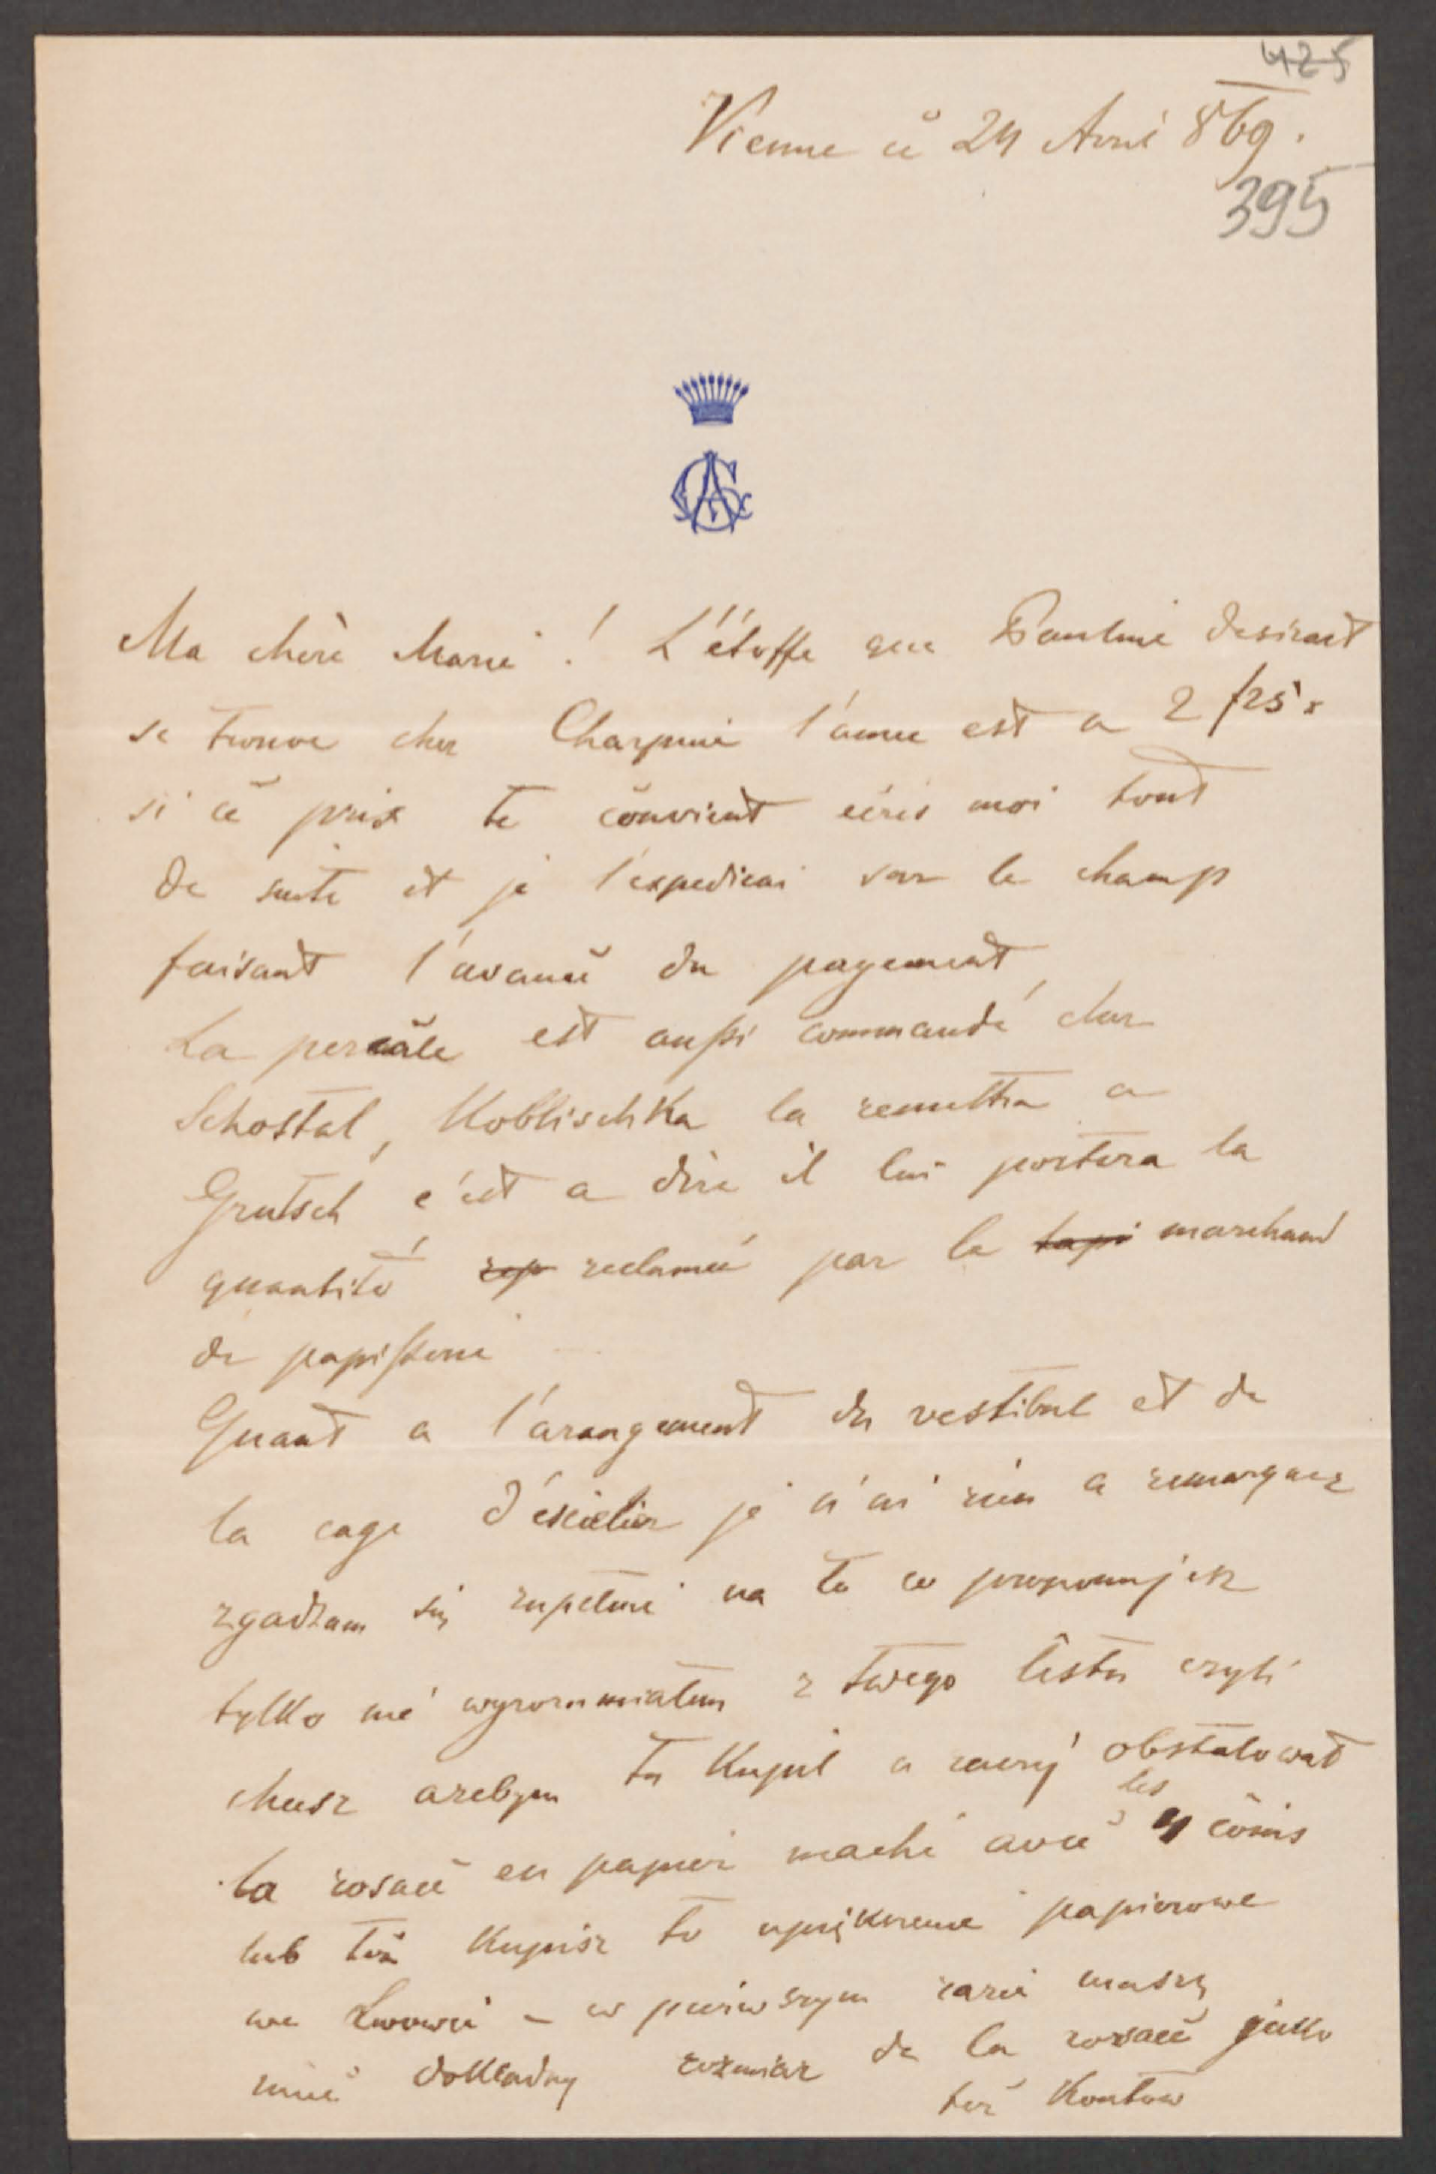 425
Vienne ce 24 Avril 869.
395
Ma chère Marie! L'étoffe que Pauline desirait
se trouve chez Charpine l'aune est a 2 f 25 x
si ce prix te convient écris moi tout
de suite et je l'expedierai sur le champ
faisant l'avance du payement
La percale est aussi commandé chez
Schostal, Koblischka la remettra a
Grutsch c'est a dire il lui portera la
quantité rep reclamée par le tapi marchand
de papisserie
Quant a l'arangement du vestibul et de
la cage d'éscalier je n'ai rien a remarquer
zgadzam się zupełnie na to co proponujesz
tylko nie wyrozumiałem z twego listu czyli
chcesz azebym tu kupił a raczej obstalował
la rosace en papier maché avec les 4 coins
lub też kupisz to upiększenie papierowe
we Lwowie – w pierwszym razie muszę
mieć dokładny rozmiar de la rosace jako
też kontów